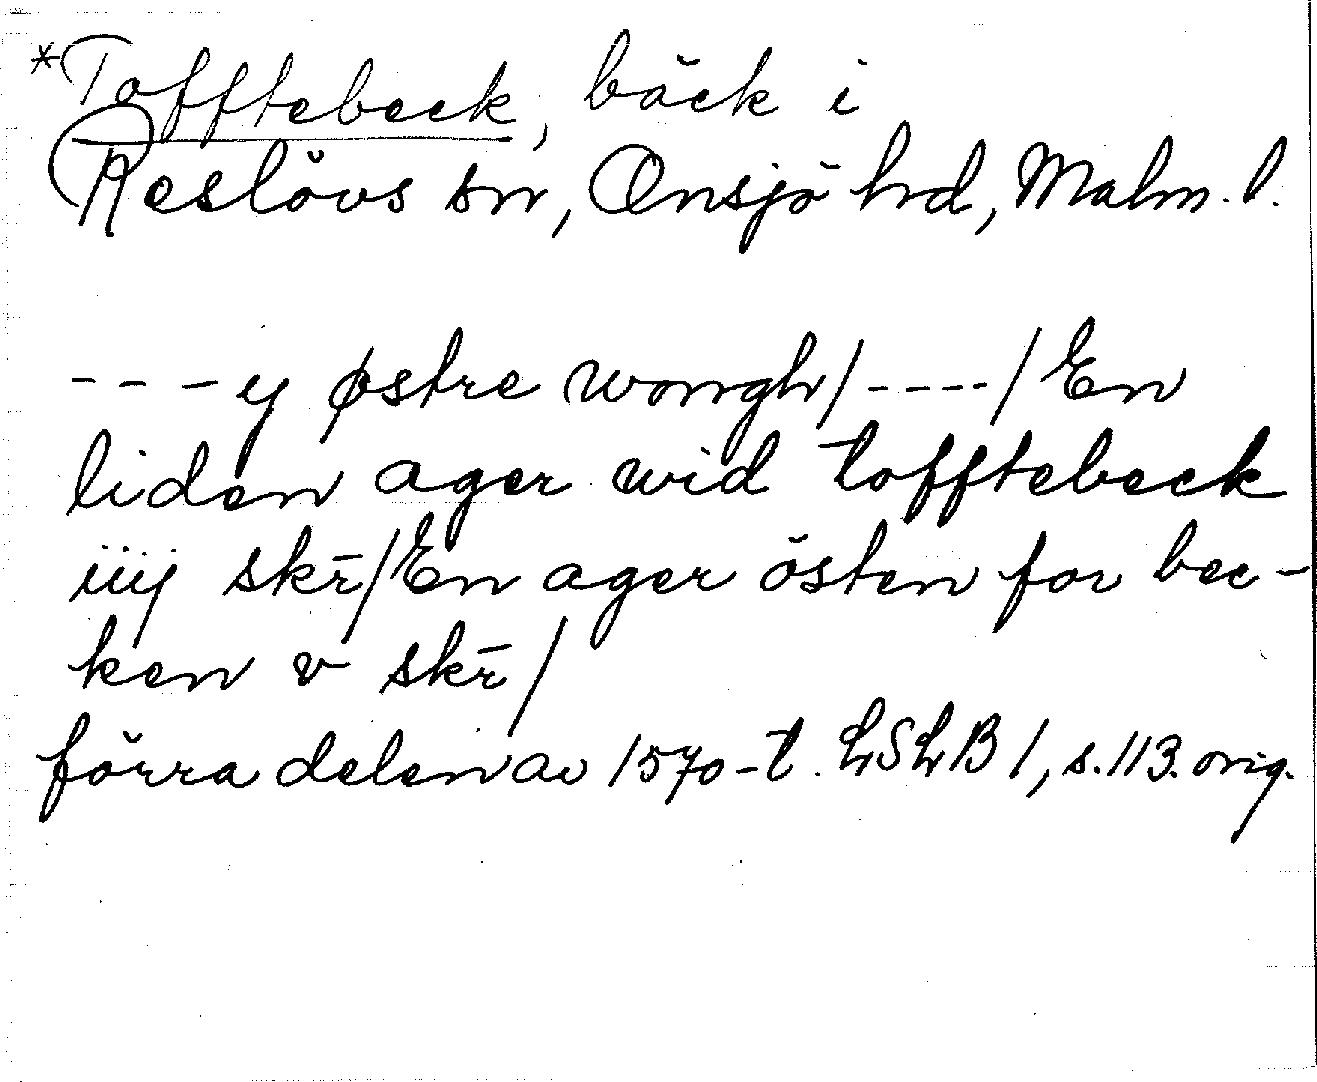 *Tofftebeck, bäck i
Reslövs sn, Onsjö hrd, Malm. l.
- - - y østre wongh/----/En
liden ager wid tofftebeck
iiij skr̄/En ager östen for bec-
ken v skr̄/
förra delen av 1570-t. LSLB 1, s.113. orig.